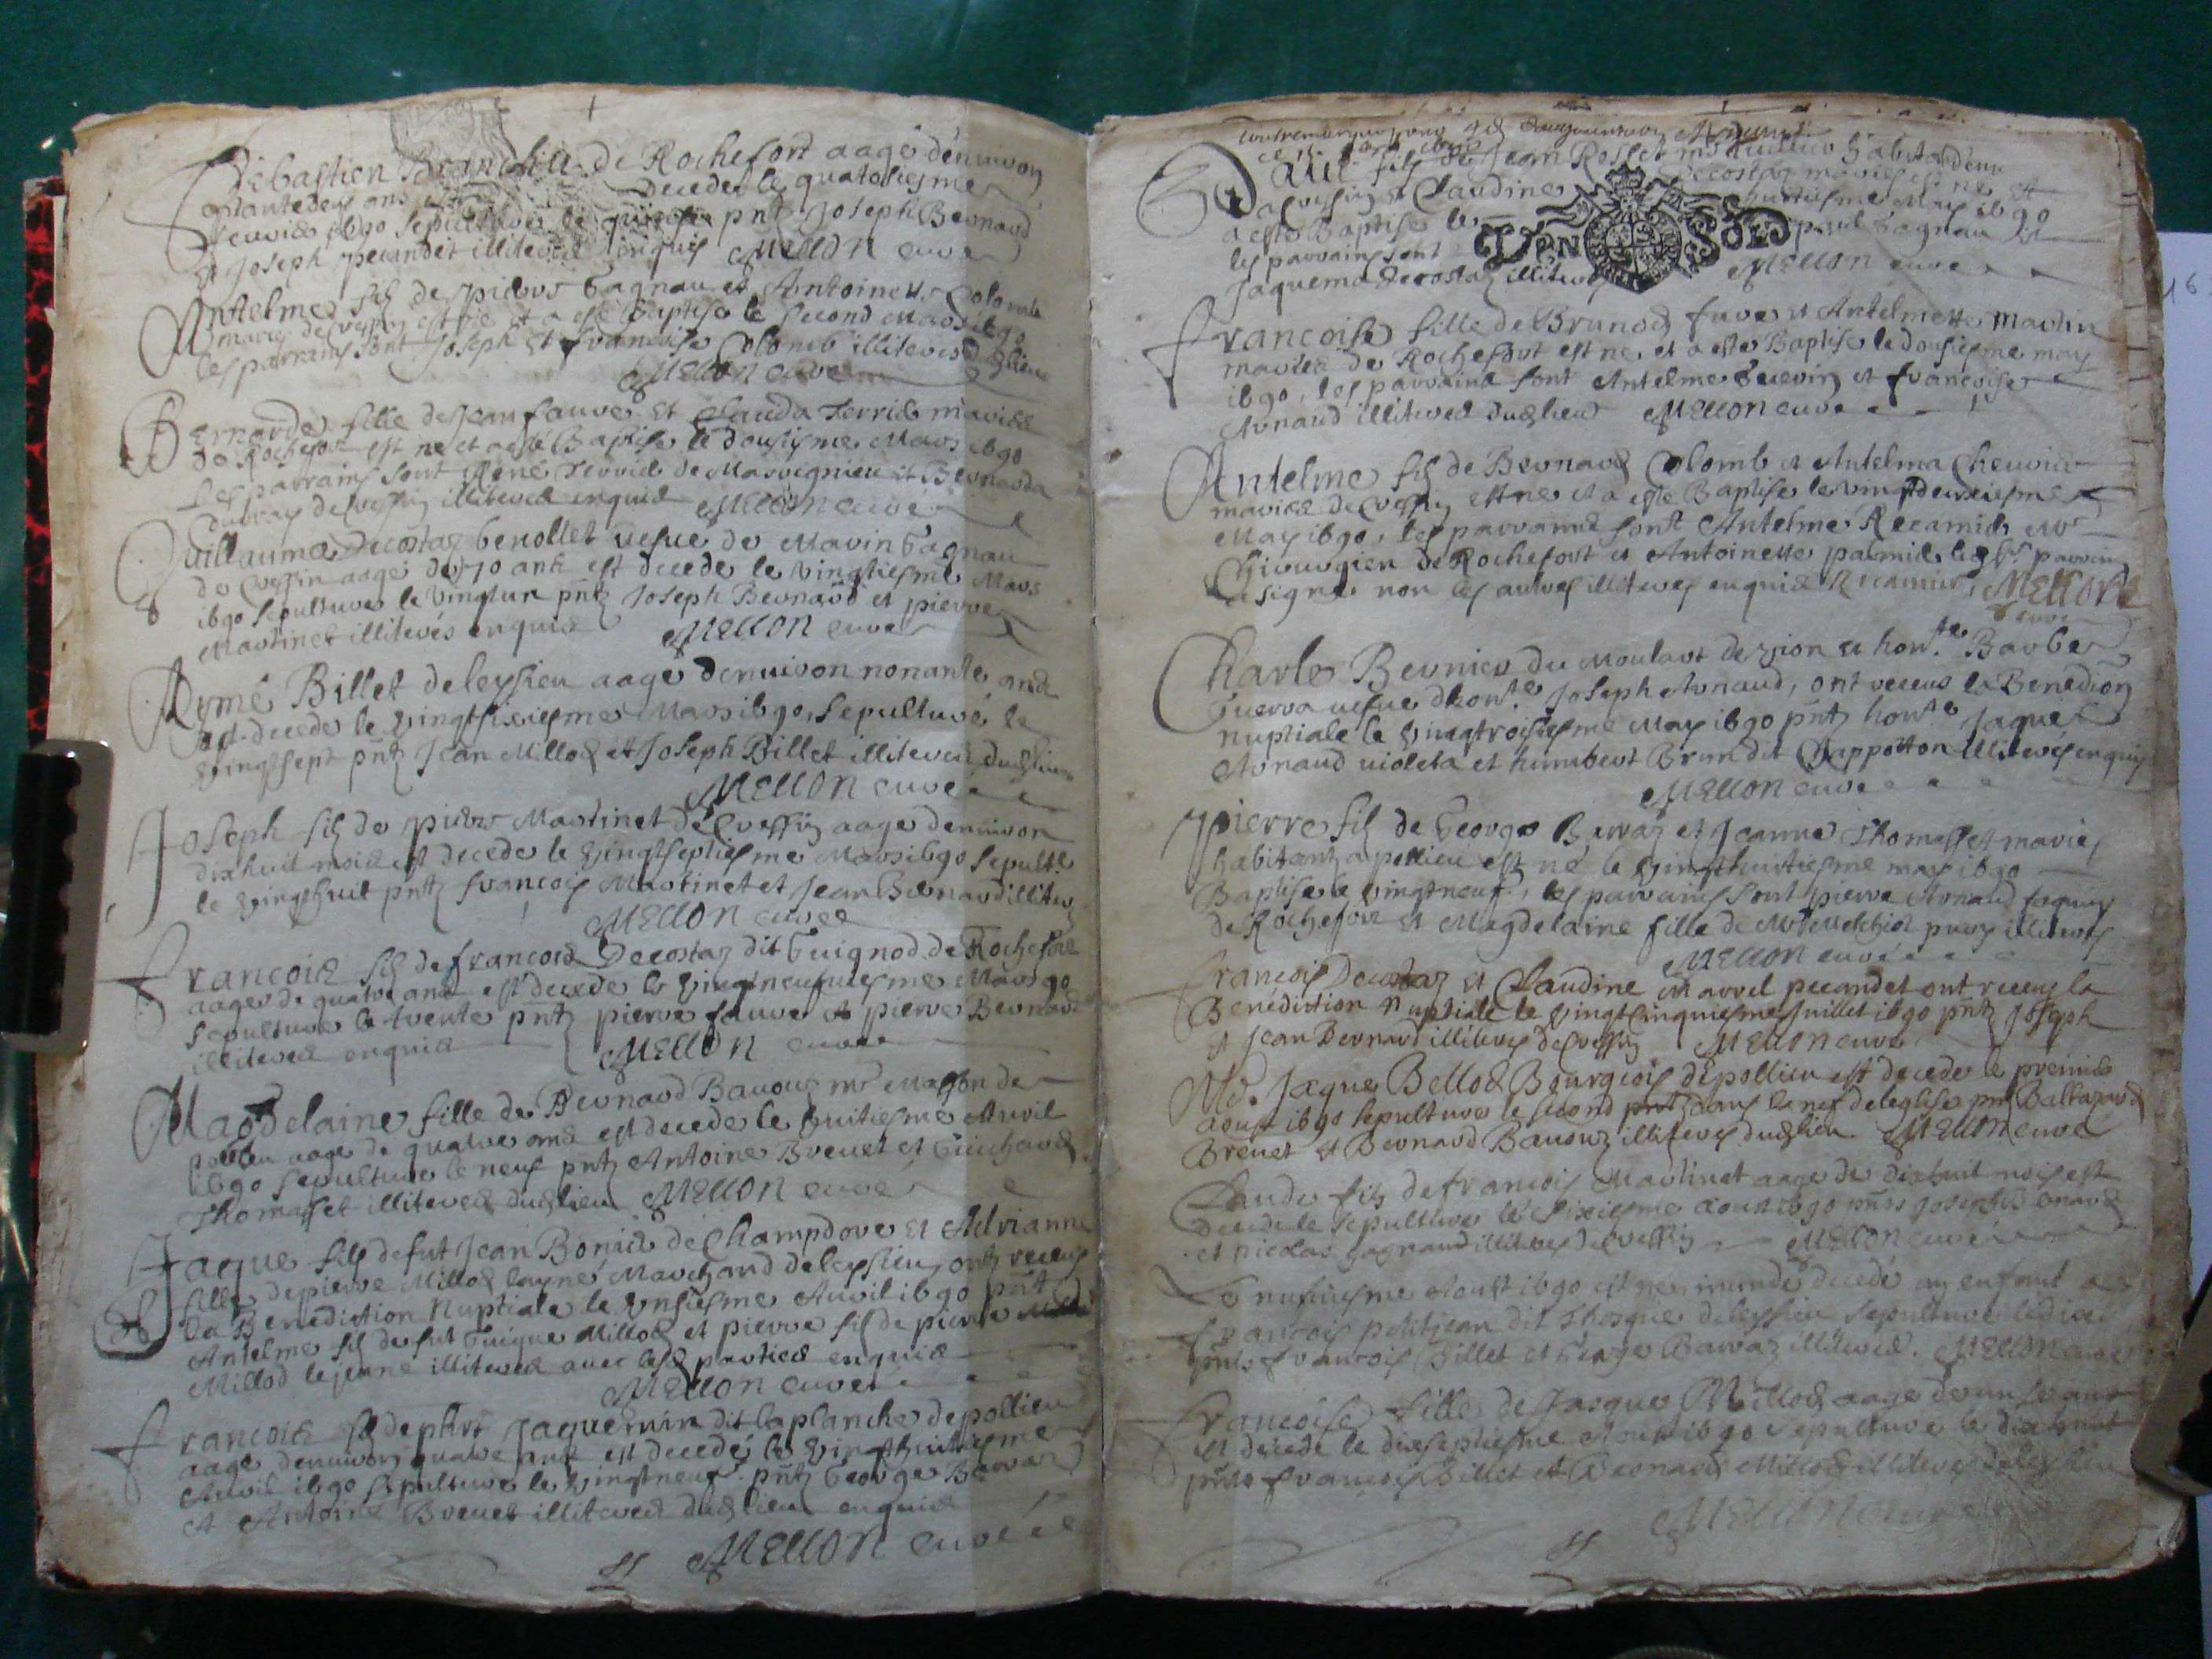 Sebastien de Rochefort aagé denuiron
ans decedé le quatoisiesme
feurier 1690 sepulturé le pnts Joseph Bernard
et Joseph pecandet illiteres enquis Mellon curé
Antelme fils de pierre Gagnau et Antoinette Colomb
mariés de Cressin est né et a esté Baptisé le second Mars 1690
les parrains sont Joseph et francoise Colomb illiteres dudlieu
Mellon curé
Bernarde fille de Jean faure et Clauda Terrier mariés
de Rochefort est né et a esté Baptisé le dousiesme Mars 1690
Les parrains sont René Terrier de Massignieu et Bernarda
de Cressin illiteres enquis Mellon curé
Guillauma Decostaz Genollet uefue de Marin Gagnau
de Cressin aagé de 70 ans est decedé le vingtiesme Mars
1690 sepulturé le vingtun pnts Joseph Bernard et pierre
Martinet illiterés enquis Mellon curé
Aymé Billet de leyssieu aagé denuiron nonante ans
est decedé le vingtsixiesme Mars 1690, sepulturé le
vingtsept pnts Jean Millod et Joseph Billet illiteres dudlieu
Mellon curé
Joseph fils de pierre Martinet de Cressin aagé denuiron
dixhuit mois est decedé le vingtseptiesme Mars 1690 sepultré
le vingthuit pnts francois Martinet et Jean Bernard illiteres
Mellon curé
francois fils de francois Decostaz dit Guignod de Rochefort
aagé de quatre ans est decedé le vingtneufuiesme Mars 90
sepulturé le trente pnts pierre faure et pierre Bernard
illiteres enquis Mellon curé
Magdelaine fille de Bernard Bauouz mr Masson de
pollieu aagé de quatre ans est decedé le huitiesme Auril
1690 sepulturé le neuf pnts Antoine Breuet et Guichard
Thomasset illiteres dudlieu Mellon curé
Jaque fils de fut Jean Bonier de Champdore et Adrianne
fille de pierre Millod layné Marchand de leyssieu ont receus
la Benediction Nuptiale le unsiesme Auril 1690 pnts
Antelme fils de fut Guigue Millod et pierre fils de pierre
Millod le jeune illiteres auec lesd parties enquis
Mellon curé
francois fils de phert Jaquemin dit la planche de pollieu
aagé denuiron quatre ans est decedé le vingthuitiesme
Auril 1690 sepulturé le vingtneuf pnts George Barraz
et Antoine Breuet illiteres dudlieu enquis
Mellon curé
fils de Jean Rosset habitant
a Cressin et Claudine Decostaz mariés est né et
a esté Baptisé le huitiesme May 1690
les parrains sont paul Gagnau et
UN SOLS
Jaquema Decostaz illiteres Mellon curé
francoise fille de Brunod fure et Antelmette Martin
mariés de Rochefort est né et a esté Baptisé le dousiesme may
1690, les parrains sont Antelme et francoise
Arnaud illiteres dudlieu Mellon curé
Antelme fils de Bernard Colomb et Antelma Cheurier
mariés de Cressin est né et a esté Baptisé le vingtdeuxiesme
May 1690, les parrains sont Antelme Recamier Mr
Chirurgien de Rochefort et Antoinette palmier led sr. parrain
a signé non les autres illiteres enquis Recamier, Mellon
curé
Charle Bernier du Moulart de yion et hon.te Barbe
Guerra uefue dhon.te Joseph Arnaud, ont receus la Benedi͠on
nuptiale le vingtroisiesme May 1690 pnts hon.te Jaque
Arnaud uioleta et humbert Brun dit Chappotton illiterés enquis
Mellon curé
pierre fils de George Barraz et Jeanne Thomasset mariés
habitants a pollieu est né le vingthuitiesme may 1690
Baptisé le vingtneuf, les parrains sont pierre Arnaud
de Rochefort et Magdelaine fille de Mr Melchior illiteres
Mellon curé
francois Decostaz et Claudine marrel pecandet ont receus la
Benediction Nuptiale le vingtcinquiesme Juillet 1690 pnts Joseph
et Jean Bernard illiteres de Cressin Mellon curé
Mr. Jaque Bellod Bourgeois de pollieu est decedé le premier
aoust 1690 sepulturé le second dans la nef de leglise pnts Baltazard
Breuet et Bernard Bauouz illiteres dudlieu. Mellon curé
Claude fils de francois Martinet aagé de dixhuit mois est
decedé le sepulturé le sixiesme aoust 1690 pnts Joseph Bernard
et nicolas Gagnaud illiteres de Cressin Mellon curé
Le neufuiesme Aoust 1690 est decedé un enfant a
francois petitjean dit de leyssieu sepulturé le dixe
pnts francois Billet et George Barraz illiteres. Mellon curé
francoise fille de Jacque Millod aagé de
est decedé le dixseptiesme Aoust 1690 sepulturé le dixhuit
pnts francois Billet et Bernard Millod illiteres de leyssieu
Mellon curé